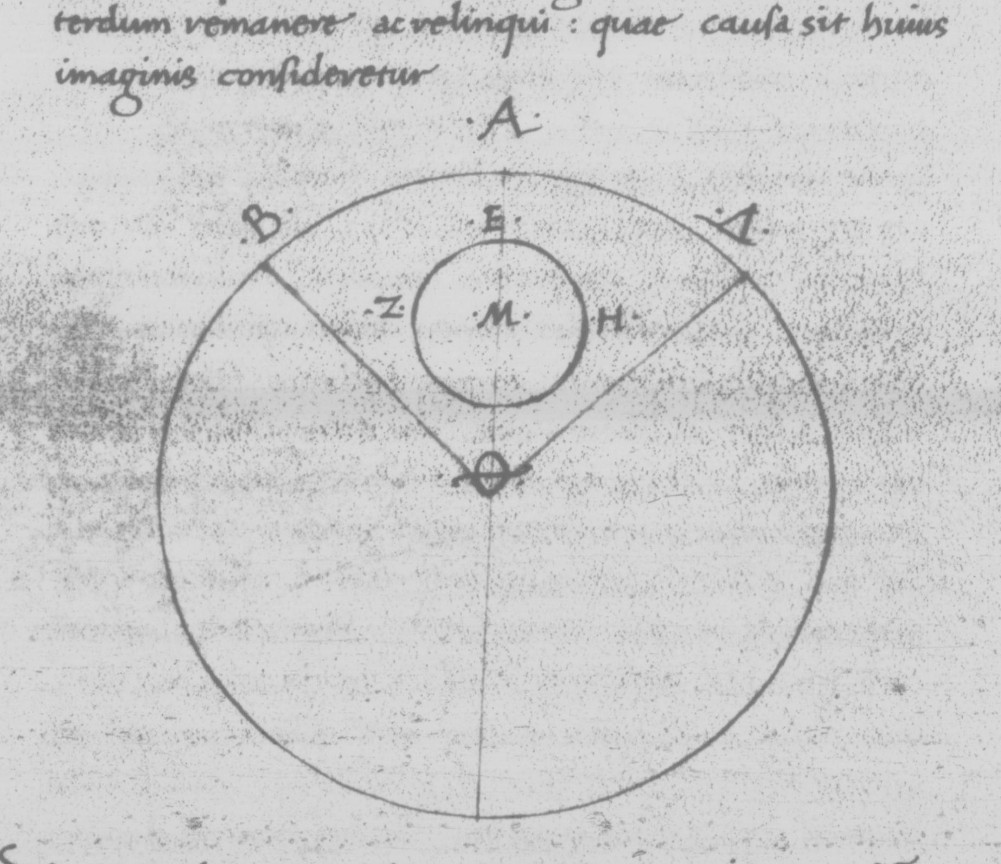 terdum remanere ac relinqui : quae causa sit huius
imaginis consideretur
·A·
·B·
·E·
·Δ·
·Z·
·M·
·H·
Θ